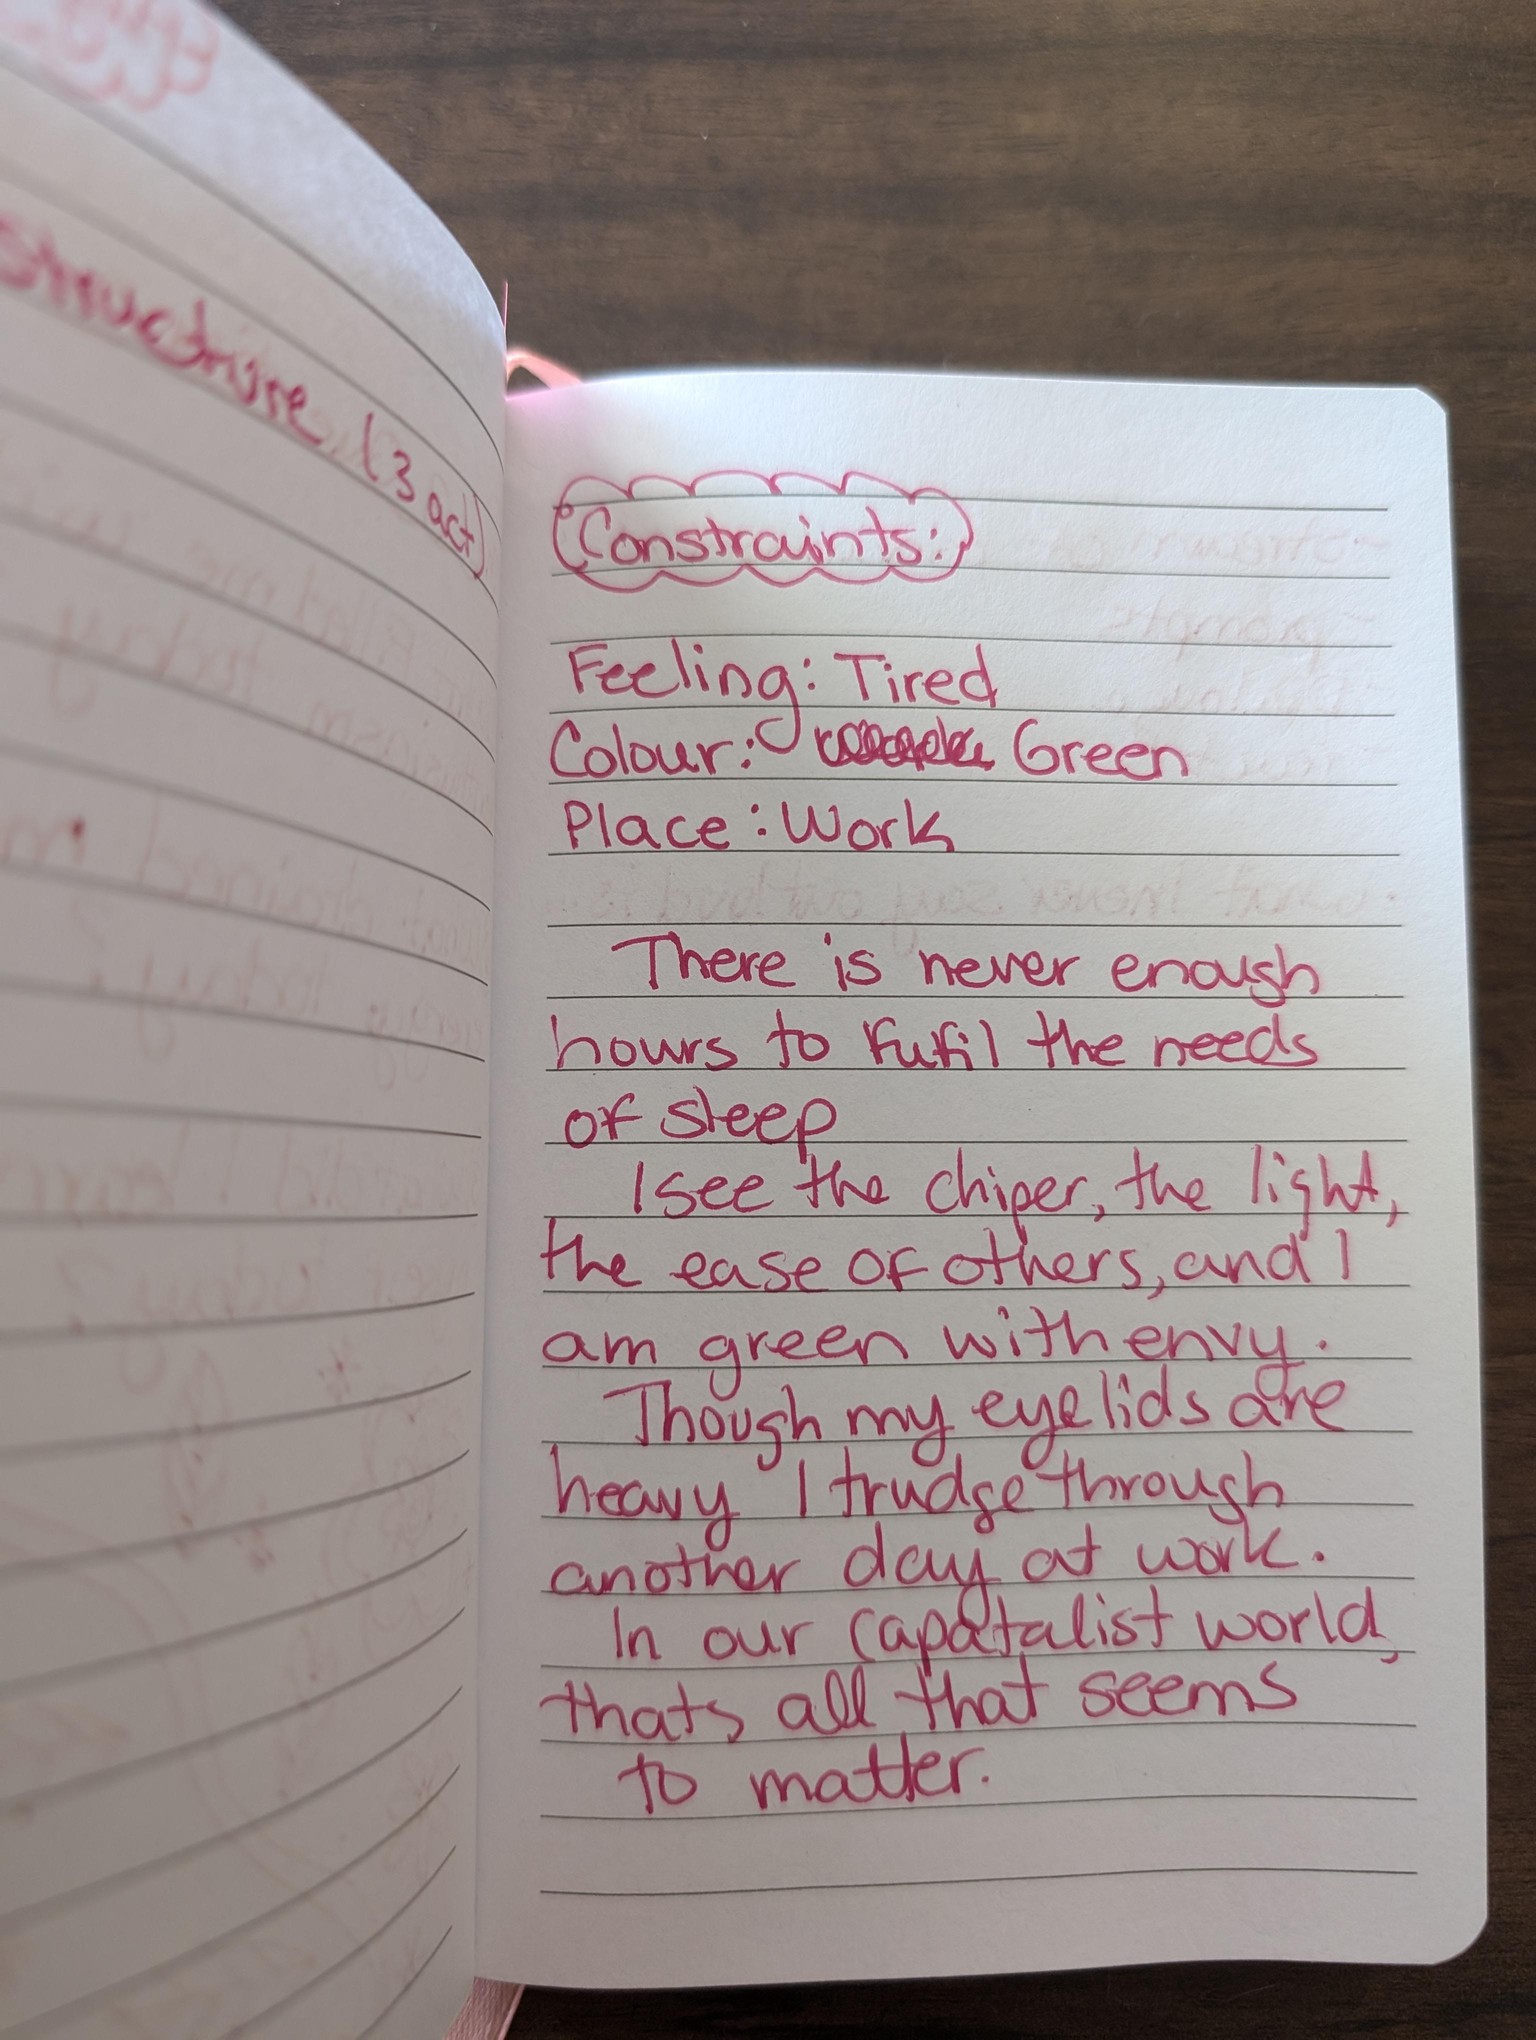 structure (3 act)
Constraints:
Feeling: Tired
Colour: Green
Place: Work
There is never enough
hours to fufil the needs
of sleep
I see the chiper, the light,
the ease of others, and I
am green with envy.
Though my eyelids are
heavy I trudge through
another day at work.
In our capatalist world,
thats all that seems
to matter.